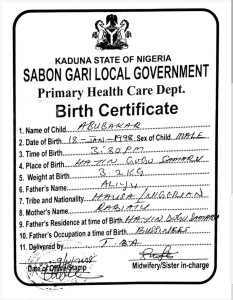 KADUNA STATE OF NIGERIA
SABON GARI LOCAL GOVERNMENT
Primary Health Care Dept.
Birth Certificate
1. Name of Child ABUBAKAR
2. Date of Birth 18-JAN-1998 Sex of Child MALE
3. Time of Birth 3:30PM
4. Place of Birth HAYIN DOGO SAMARU
5. Weight at Birth 3.2KG
6. Father's Name ALIYU
7. Tribe and Nationality HAUSA/NIGERIAN
8. Mother's Name RABIATU
9. Father's Residence at time of Birth HAYIN DOGO SAMARU
10. Father's Occupation a time of Birth BUSSINESS
11. Delivered by T.B.A
Date of Office Stamp
Midwifery/Sister in-charge